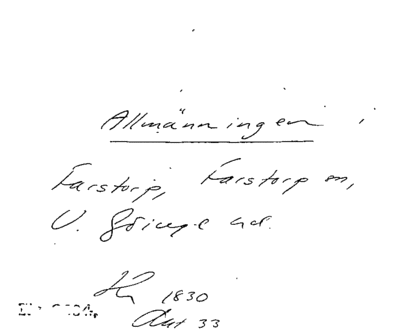 Allmänningen i
Farstorp, Farstorp sn,
V. Göinge hd.
1830
Akt 33